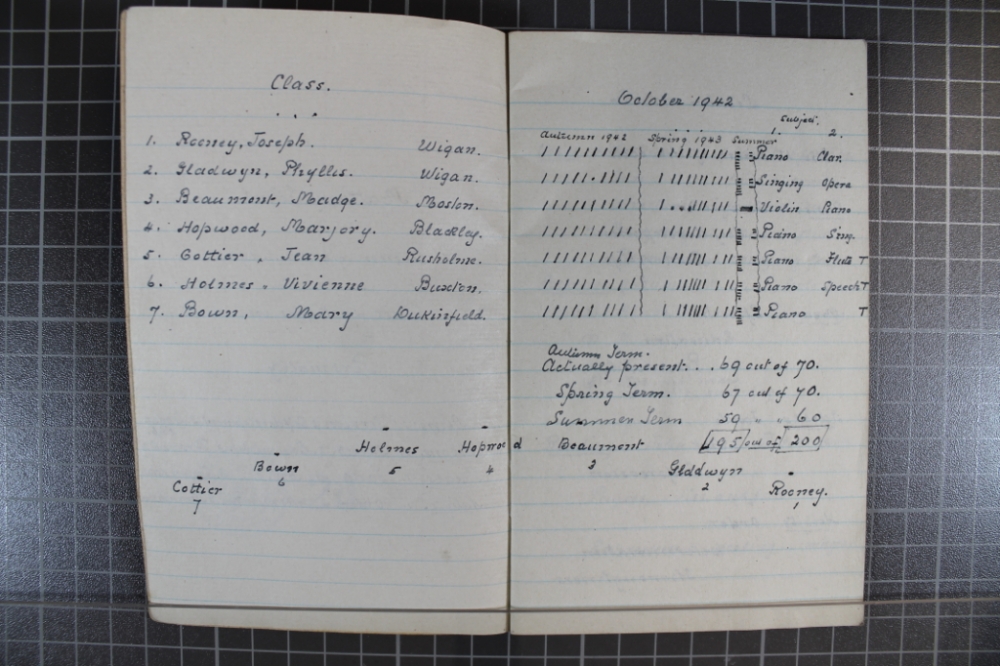 Class.
1. Rooney, Joseph. Wigan.
2. Gladwyn, Phyllis. Wigan.
3. Beaumont, Madge. Moston.
4. Hopwood, Marjory. Blackley.
5. Cottier, Jean Rusholme.
6. Holmes, Vivienne Buxton.
7. Bown, Mary Dukinfield.
Holmes Hopwood
5 4
Bown
6
Cottier
7
October 1942
Subject.
Autumn 1942 Spring 1943 Summer 1. 2.
Piano Clar.
Singing Opera
Violin Piano
Piano Sing.
Piano Flute T
Piano Speech T
Piano T
Autumn Term.
Actually present... 69 out of 70.
Spring Term. 67 out of 70.
Summer Term 59 " " 60
Beaumont 195 out of 200
3
Gladwyn
2
Rooney.
1